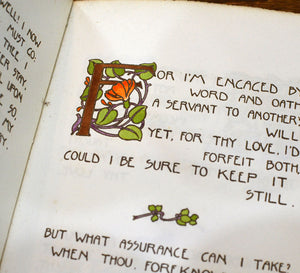 WELL! I NOW
MUST GO.
THEE I
STAY
UPON
SO,
MY
FOR I'M ENGAGED BY
WORD AND OATH
A SERVANT TO ANOTHER'S
WILL
YET, FOR THY LOVE, I'D
FORFEIT BOTH,
COULD I BE SURE TO KEEP IT
STILL.
BUT WHAT ASSURANCE CAN I TAKE?
WHEN THOU, FOREKNOW